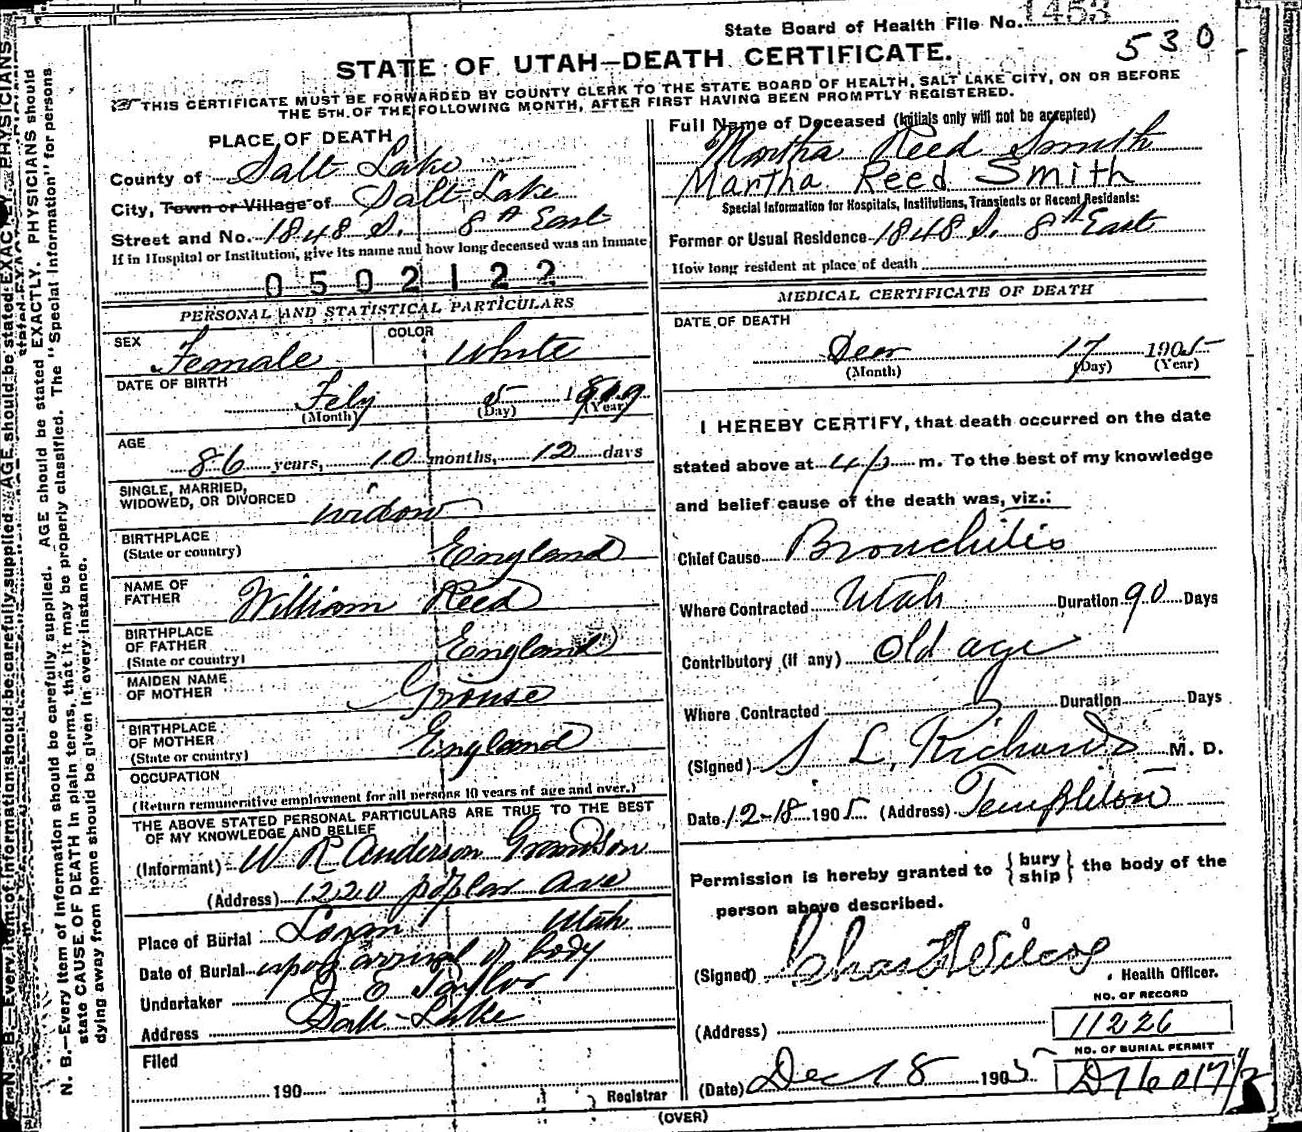 State Board of Health File No. 1453
530
STATE OF UTAH—DEATH CERTIFICATE.
THIS CERTIFICATE MUST BE FORWARDED BY COUNTY CLERK TO THE STATE BOARD OF HEALTH, SALT LAKE CITY, ON OR BEFORE
THE 5TH. OF THE FOLLOWING MONTH, AFTER FIRST HAVING BEEN PROMPTLY REGISTERED.
PLACE OF DEATH
County of Salt Lake
City, Town or Village of Salt Lake
Street and No. 1848 S. 8th East
If in Hospital or Institution, give its name and how long deceased was an Inmate
0502122
PERSONAL AND STATISTICAL PARTICULARS
SEX Female
COLOR White
DATE OF BIRTH Feby 5
(Month) (Day) (Year)
AGE 86 years, 10 months, 12 days
SINGLE, MARRIED,
WIDOWED, OR DIVORCED widow
BIRTHPLACE
(State or country) England
NAME OF
FATHER William Reed
BIRTHPLACE
OF FATHER
(State or country) England
MAIDEN NAME
OF MOTHER Grouse
BIRTHPLACE
OF MOTHER
(State or country) England
OCCUPATION
(Return remunerative employment for all persons 10 years of age and over.)
THE ABOVE STATED PERSONAL PARTICULARS ARE TRUE TO THE BEST
OF MY KNOWLEDGE AND BELIEF
(Informant) W R Anderson Grandson
(Address) 1220 poplar Ave
Place of Burial Logan Utah
Date of Burial upon arrival of body
Undertaker E Taylor
Address Salt-Lake
Filed
190
Registrar
Full Name of Deceased (Initials only will not be accepted)
Martha Reed Smith
Martha Reed Smith
Special Information for Hospitals, Institutions, Transients or Recent Residents:
Former or Usual Residence 1848 S. 8th East
How long resident at place of death
MEDICAL CERTIFICATE OF DEATH
DATE OF DEATH
Decr 17 1905
(Month) (Day) (Year)
I HEREBY CERTIFY, that death occurred on the date
stated above at 4 p m. To the best of my knowledge
and belief cause of the death was, viz.:
Chief Cause Bronchitis
Where Contracted Utah Duration 90 Days
Contributory (if any) old age
Where Contracted Duration Days
(Signed) S L. Richards M. D.
Date 12-18 1905 (Address) Templeton
Permission is hereby granted to { bury ship } the body of the
person above described.
(Signed) Chas Wilcox
Health Officer.
(Address)
NO. OF RECORD
11226
NO. OF BURIAL PERMIT
(Date) Dec 18 1905
(OVER)
N. B.—Every item of information should be carefully supplied. AGE should be stated EXACTLY. PHYSICIANS should
state CAUSE OF DEATH in plain terms, that it may be properly classified. The "Special Information" for persons
dying away from home should be given in every instance.
N. B.—Every item of information should be carefully supplied. AGE should be stated EXACTLY. PHYSICIANS